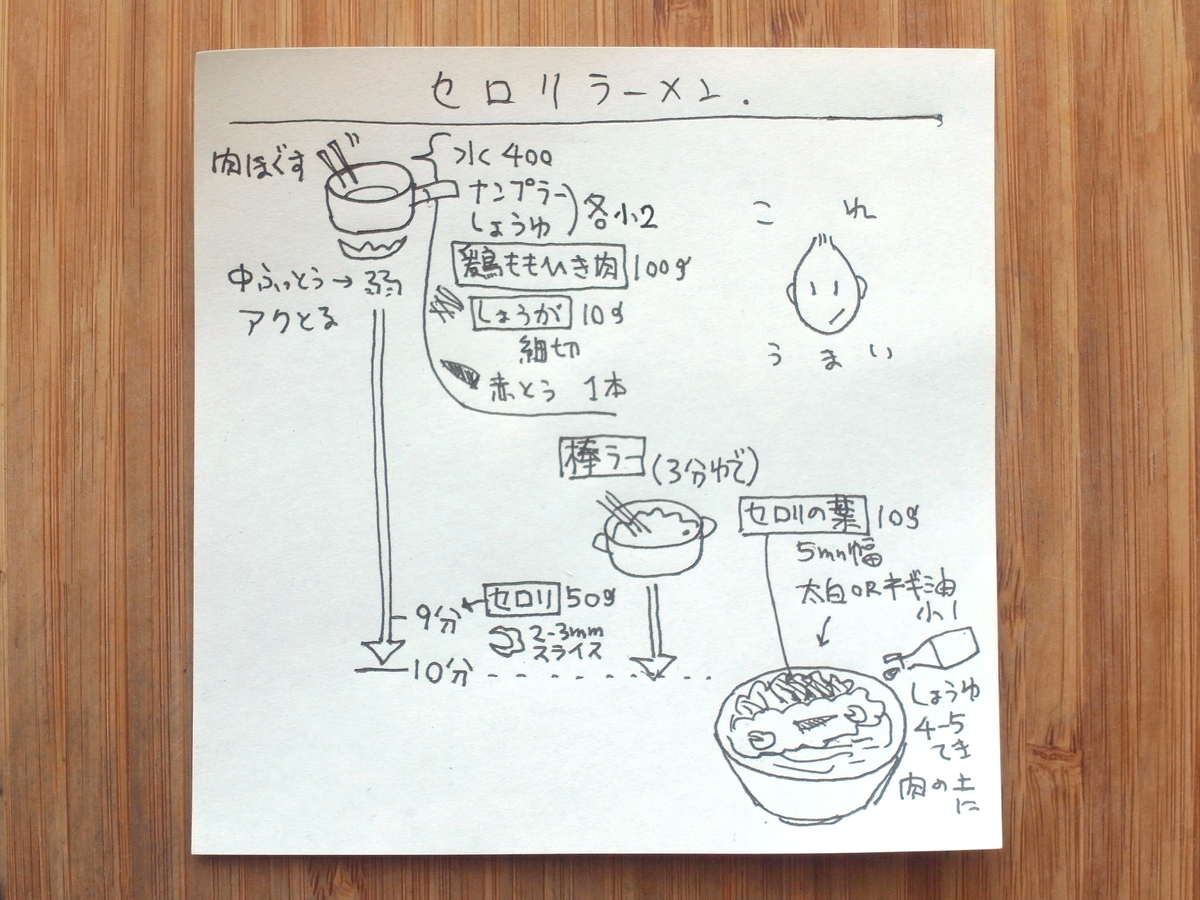 セロリラーメン.
肉ほぐす
水400
ナンプラー
しょうゆ
各小2
鶏ももひき肉 100g
しょうが 10g
細切
赤とう 1本
中ふっとう→弱
アクとる
これ
うまい
棒ラー (3分ゆで)
セロリの葉 10g
5mm幅
太白ORネギ油
小1
9分
セロリ 50g
2-3mm
スライス
10分
しょうゆ
4-5
てき
肉の上
に